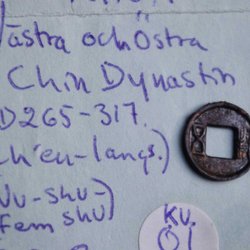 Västra och Östra
Chin Dynastin
D 265-317.
ch'en-langs.)
Wu-shu-)
fem shu)
KU.
01